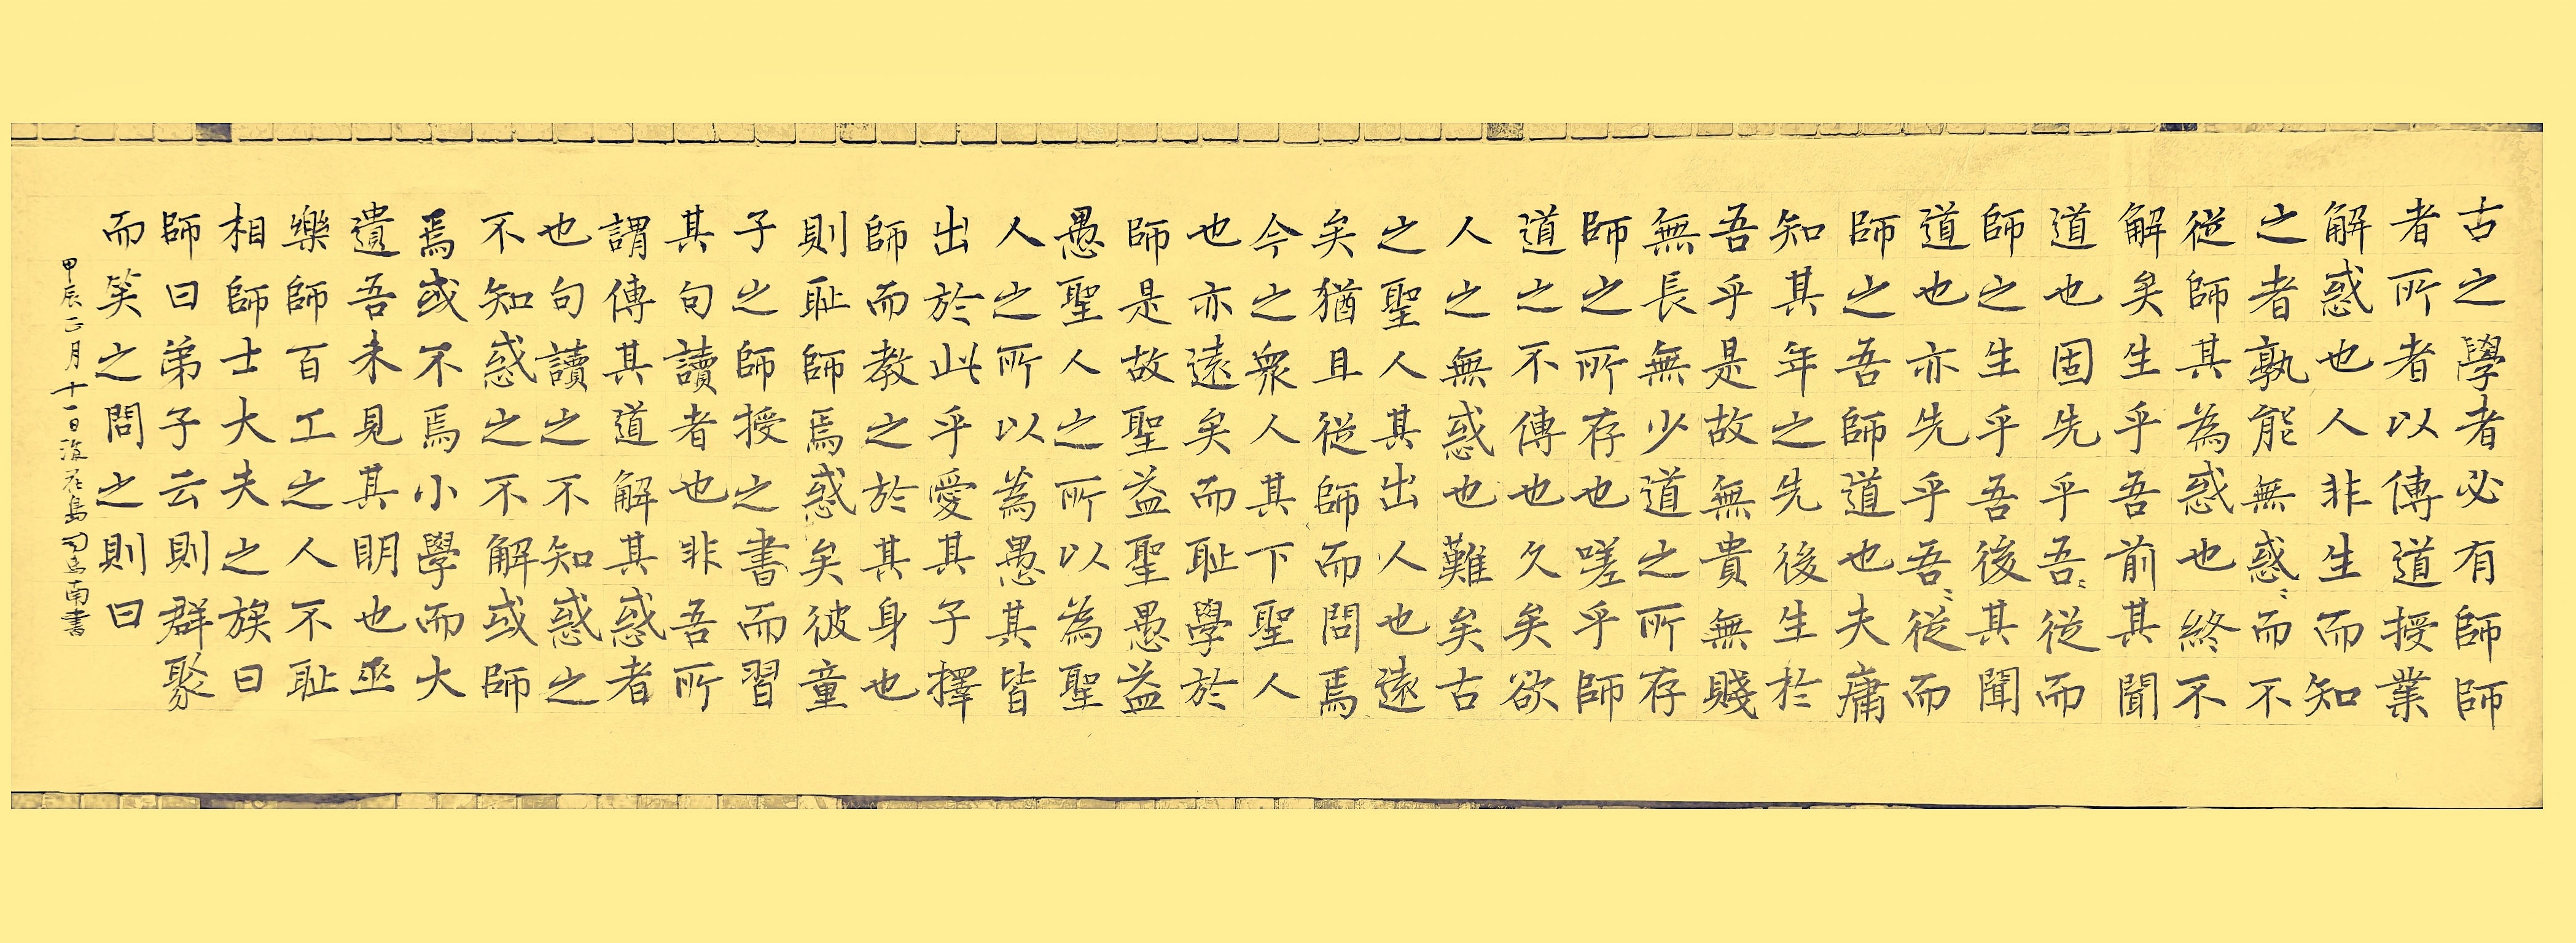 古之學者必有師師
者所者以傳道授業
解惑也人非生而知
之者孰能無惑〻而不
從師其為惑也終不
解矣生乎吾前其聞
道也固先乎吾〻從而
師之生乎吾後其聞
道也亦先乎吾〻從而
師之吾師道也夫庸
知其年之先後生於
吾乎是故無貴無賤
無長無少道之所存
師之所存也嗟乎師
道之不傳也久矣欲
人之無惑也難矣古
之聖人其出人也遠
矣猶且從師而問焉
今之眾人其下聖人
也亦遠矣而耻學於
師是故聖益聖愚益
愚聖人之所以為聖
人之所以為愚其皆
出於此乎愛其子擇
師而教之於其身也
則耻師焉惑矣彼童
子之師授之書而習
其句讀者也非吾所
謂傳其道解其惑者
也句讀之不知惑之
不知惑之不解或師
焉或不焉小學而大
遺吾未見其明也巫
樂師百工之人不耻
相師士大夫之族曰
師曰弟子云則群聚
而笑之問之則曰
甲辰正月十一日島南書